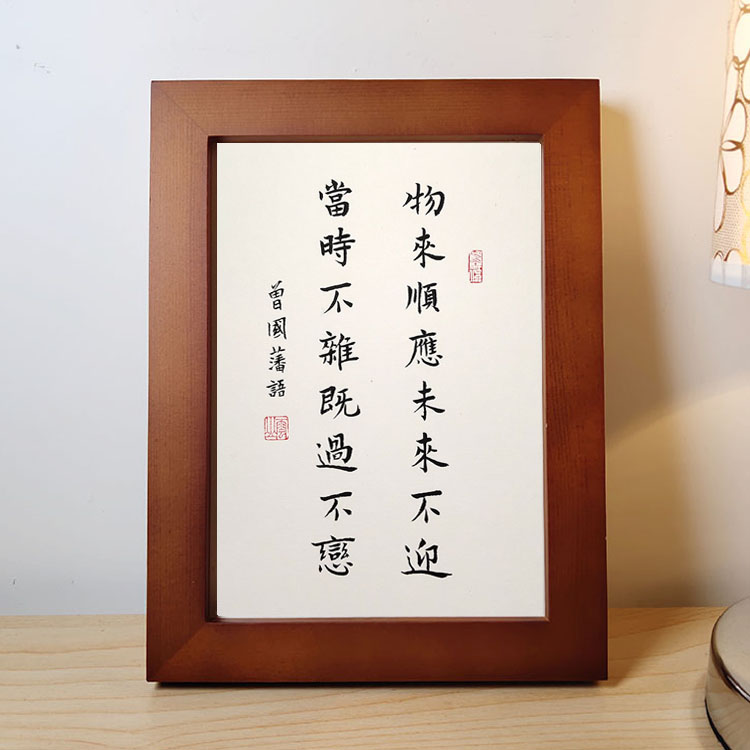 物來順應未來不迎
當時不雜既過不戀
曾國藩語